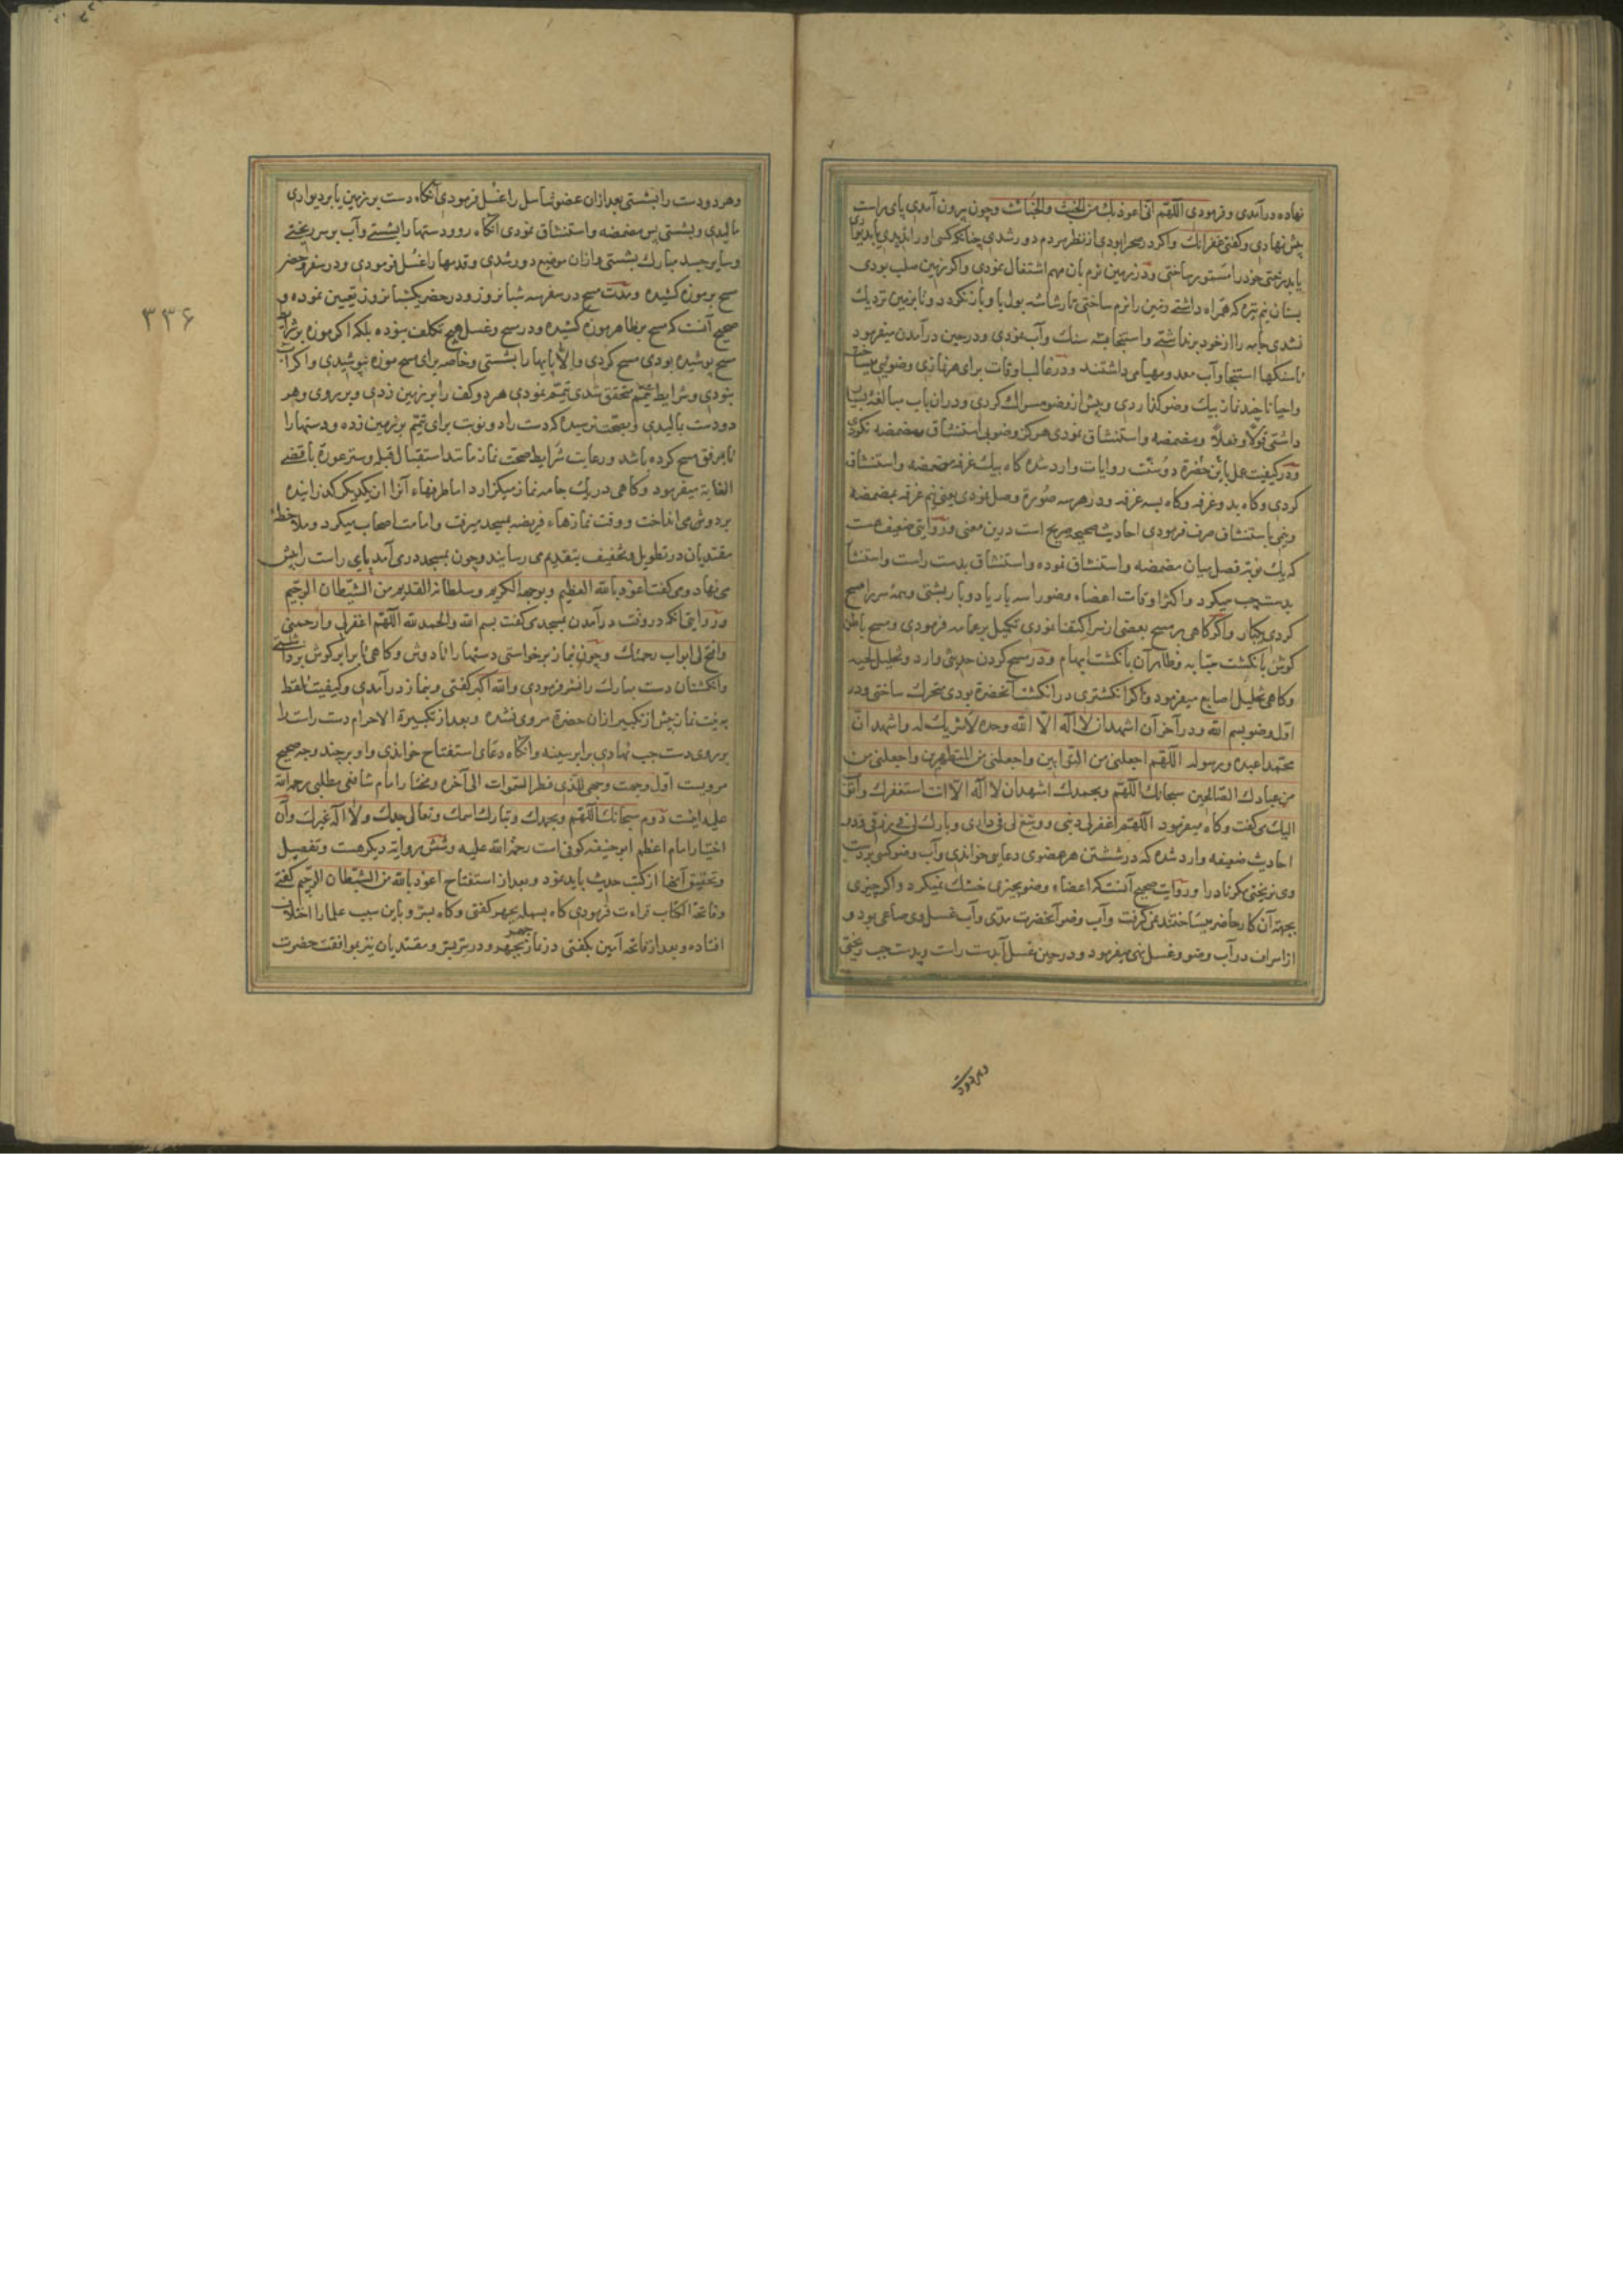 نهاده درآمدی و فرمودی اللّهم انی اعوذ بك من الخبث والخبائث و چون بیرون آمدی پای راست
پیش نهادی و کفتی غفرانك واکر در صحرا بودی از نظر مردم دور شدی چنانکه کسی اورا ندیدی یا بدیواری
یا بدرختی خود را مستور ساختی و در زمین نرم بان مهم اشتغال نمودی واکر زمین صلب بودی
بسنان نیم نیزه که همراه داشتی زمین را نرم ساختی تا رشاشه بول باو باز نکردد و تا بزمین نزدیك
نشدی جامه را از خود برنداشتی و استنجا به سنك وآب نمودی و در حین درآمدن میفرمود
تا سنکها استنجا وآب معد و مهیا می داشتند و در غالب اوقات برای هر نمازی وضویی میساخت
واحیانا چند نماز بیك وضو کذاردی و پیش از وضو مسواك کردی و دران باب مبالغه بسیار
داشتی قولاً و فعلاً و مضمضه واستنشاق نمودی هرکز وضو بی استنشاق و مضمضه نکردی
و در کیفیت عمل باین حضرة دو سنّت روایات وارد شده کاه بیك غرفه مضمضه واستنشاق
کردی وکاه بدو غرفه وکاه بسه غرفه و در هر سه صورة وصل نمودی یعنی نیم غرفه بمضمضه
ونیمی باستنشاق صرف فرمودی احادیث صحیحه صریح است درین معنی و در روایتی ضعیف هست
که یك نوبت فصل میان مضمضه واستنشاق نموده واستنشاق بدست راست واستنشا
بدست چپ میکرد و اکثر اوقات اعضاء وضو را سه بار یا دو بار بشستی وهمه سر را مسح
کردی یکبار واکر کاهی بر مسح بعضی از سر اکتفا نمودی تکمیل بر عمامه فرمودی و مسح باطن
کوش بانکشت سبّابه و ظاهر آن بانکشت ابهام و در مسح کردن حدیثی وارد و تخلیل لحیه
وکاهی تخلیل اصابع میفرمود واکر انکشتری در انکشت آنحضرة بودی متحرك ساختی و در
اوّل وضو بسم الله و در آخر آن اشهد ان لا اله الّا الله وحده لا شریك له واشهد انّ
محمّدا عبده ورسوله اللّهم اجعلنی من التوّابین واجعلنی من المتطهرین واجعلنی من
من عبادك الصّالحین سبحانك اللّهم وبحمدك اشهد ان لا اله الّا انت استغفرك واتوب
الیك می کفت وکاه میفرمود اللّهم اغفرلی ذنبی ووسّع لی فی داری وبارك لی فی رزقی و در
احادیث ضعیفه وارد شده که در شستن هر عضوی دعایی خواندی وآب وضو کسی بر دست
وی نریختی مکر نادرا و روایات صحیح آنست که اعضاء وضو بچیزی خشك نمیکرد واکر چیزی
بجهة آن کار حاضر میساختند نمی کرفت وآب وضو آنحضرت مدّی وآب غسل وی صاعی بود و
از اسراف در آب وضو وغسل نهی میفرمود و در حین غسل آب بدست راست وبدست چپ ریختی
وهر دو دست
وهر دو دست را بشستی بعد ازان عضو تناسل را غسل فرمودی آنکاه دست بر زمین یا بر دیواری
مالیدی وبشستی پس مضمضه واستنشاق نمودی آنکاه رو و دستها را بشستی وآب بر سر ریختی
وسایر جسد مبارك بشستی وازان موضع دور شدی وقدمها را غسل فرمودی و در سفر وحضر
مسح بر موزه کشیده ومدّت مسح در سفر سه شبانروز و در حضر یکشبانروز تعیین نموده و
صحیح آنست که مسح بر ظاهر موزه کشیده و در مسح وغسل هیچ تکلف ننموده بلکه اکر موزه بر شرایط
مسح پوشیده بودی مسح کردی والّا پایها را بشستی و خاصه برای مسح موزه نپوشیدی واکر آب
نبودی وشرایط تیمّم متحقق شدی تیمّم نمودی هر دو کف را بر زمین زدی و بر روی وهر
دو دست مالیدی و بصحّت نرسیده که دست را دو نوبت برای تیمّم بر زمین زده ودستها را
تا مرفق مسح کرده باشد ورعایت شرایط صحّت نماز مانند استقبال قبله وستر عورة باقصی
الغایة میفرمود وکاهی در یك جامه نماز میکزارد اما طرفهاء آنرا از یکدیکر کذرانیده
بر دوش می انداخت و وقت نمازهاء فریضه بمسجد میرفت وامامت اصحاب میکرد وملاحظهٔ
مقتدیان در تطویل وتخفیف بتقدیم می رسانید و چون بمسجد در می آمد پای راست را پیش
می نهاد ومی کفت اعوذ بالله العظیم وبوجهه الکریم وسلطانه القدیم من الشّیطان الرّجیم
و در روایتی آنکه در وقت درآمدن بمسجد می کفت بسم الله والحمد لله اللّهم اغفرلی وارحمنی
وافتح لی ابواب رحمتك و چون بنماز برخواستی دستها را تا دوش وکاهی تا برابر کوش برداشتی
وانکشتان دست مبارك را نشر فرمودی والله اکبر کفتی وبنماز درآمدی وکیفیت تلفظ
به نیّت نماز پیش از تکبیر ازان حضرة مروی نشده وبعد از تکبیرة الاحرام دست راست را
بر روی دست چپ نهادی برابر سینه وآنکاه دعای استفتاح خواندی واو بر چند وجه صحیح
مرویست اوّل وجّهت وجهی للّذی فطر السّموات الی آخره ومختار امام شافعی مطلبی رحمة الله
علیه اینست دوم سبحانك اللّهم وبحمدك وتبارك اسمك وتعالی جدك ولا اله غیرك وآن
اختیار امام اعظم ابو حنیفه کوفی است رحمة الله علیه وشش روایة دیکر هست وتفصیل
وتحقیق آنها از کتب حدیث باید نمود وبعد از استفتاح اعوذ بالله من الشّیطان الرّجیم کفتی
وفاتحة الکتاب قراءت فرمودی کاه بسمله بجهر کفتی وکاه بسرّ وباین سبب علما را اختلاف
افتاده وبعد از فاتحه آمین بکفتی در نماز جهر بجهر و در سرّ بسرّ ومقتدیان نیز بموافقت حضرت
۳۳۶